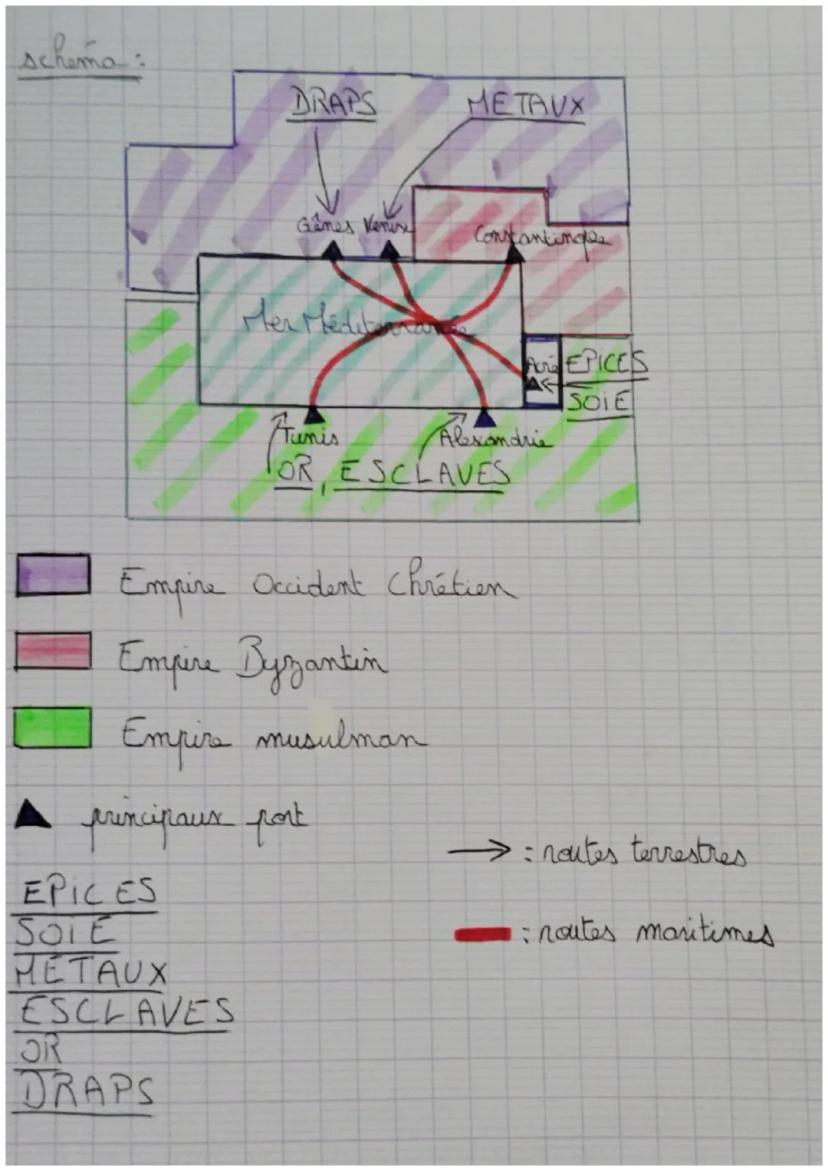 schéma :
DRAPS METAUX
Gênes Venise Constantinople
Mer Méditerranée
Acre EPICES
SOIE
Tunis Alexandrie
OR, ESCLAVES
Empire Occident Chrétien
Empire Byzantin
Empire musulman
principaux port
→ : routes terrestres
EPICES
SOIE
: routes maritimes
METAUX
ESCLAVES
OR
DRAPS